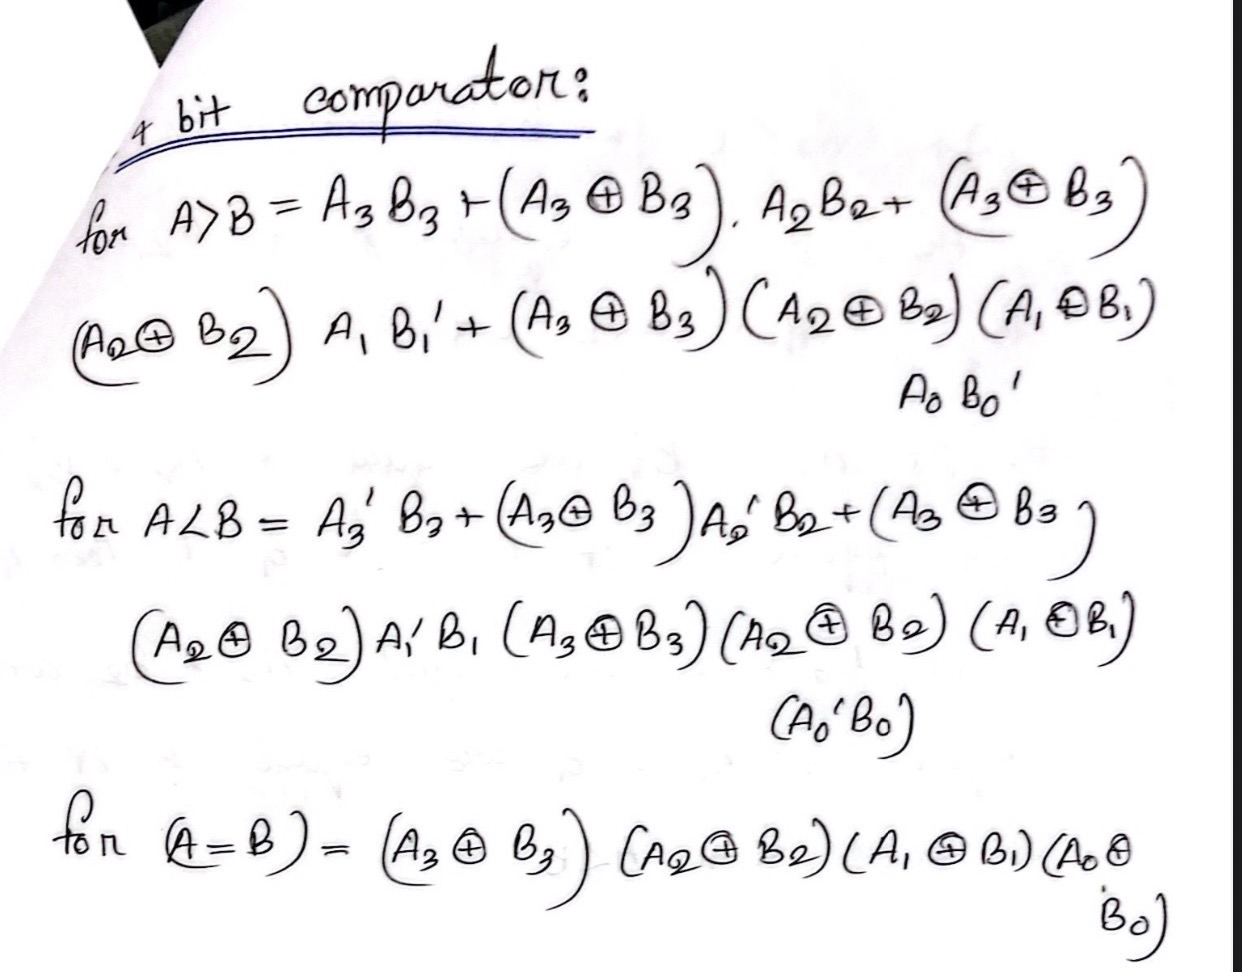 4 bit comparator:
for A>B = A₃ B₃ + (A₃ ⊕ B₃). A₂ B₂ + (A₃ ⊕ B₃)
(A₂ ⊕ B₂) A₁ B₁' + (A₃ ⊕ B₃) (A₂ ⊕ B₂) (A₁ ⊕ B₁)
A₀ B₀'
for A<B = A₃' B₃ + (A₃ ⊕ B₃) A₂' B₂ + (A₃ ⊕ B₃)
(A₂ ⊕ B₂) A₁' B₁ (A₃ ⊕ B₃) (A₂ ⊕ B₂) (A₁ ⊕ B₁)
(A₀' B₀)
for (A=B) = (A₃ ⊕ B₃) (A₂ ⊕ B₂) (A₁ ⊕ B₁) (A₀ ⊕
B₀)